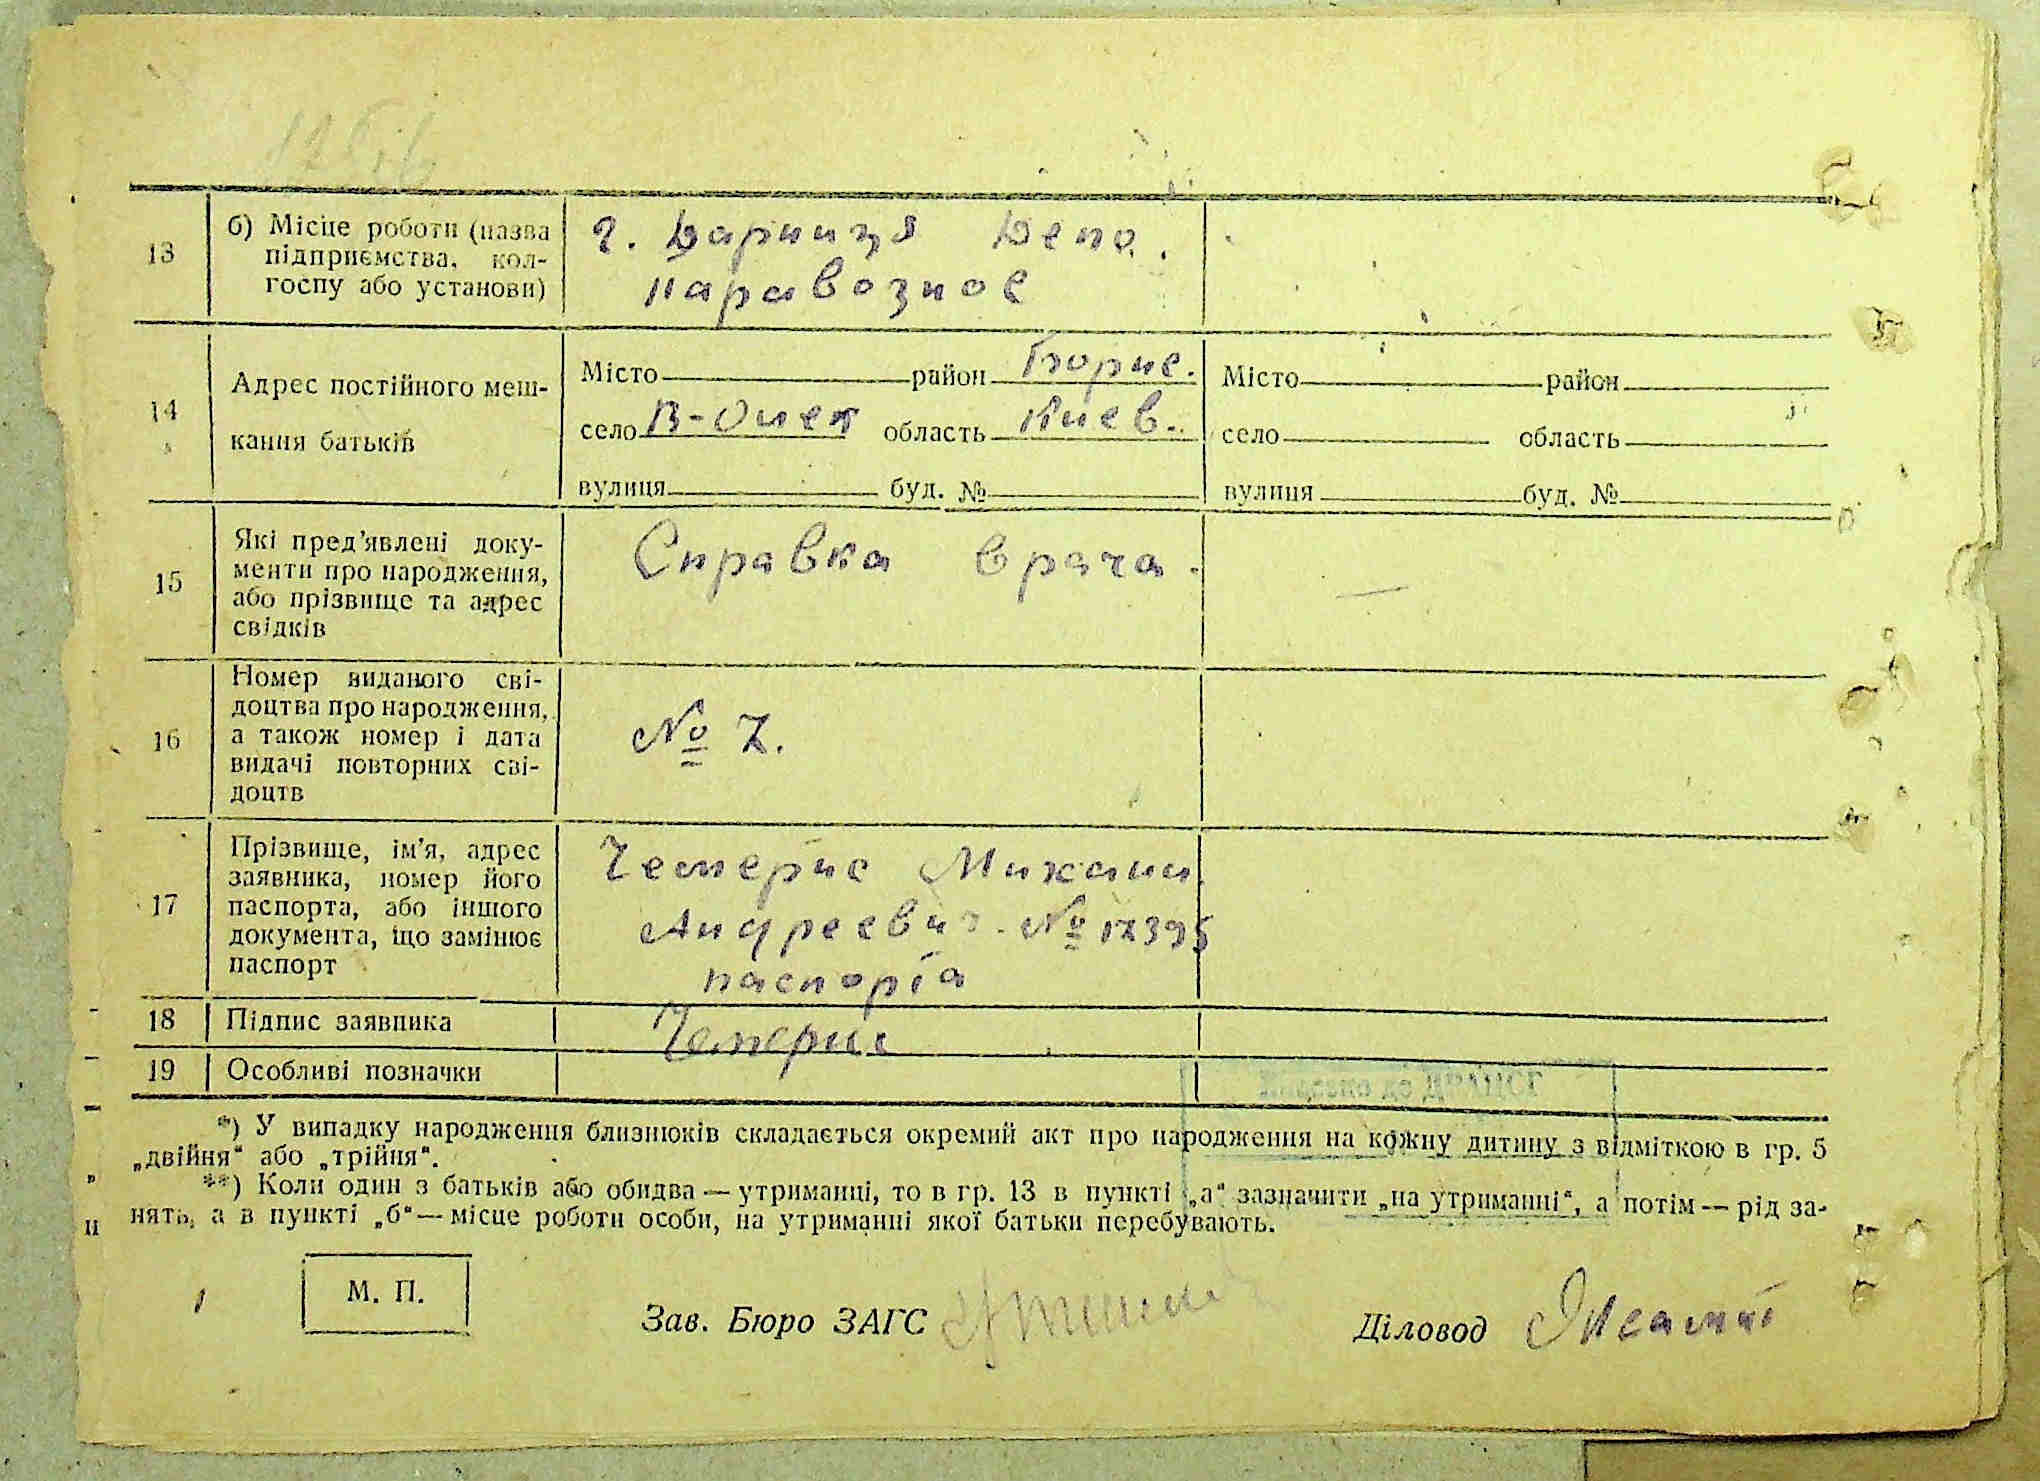 13
б) Місце роботи (назва
підприємства, кол-
госпу або установи)
г. Дарниця Депо.
паравозное
14
Адрес постійного меш-
кання батьків
Місто район Борис.
село В-Олек область Киев.
вулиця буд. №
Місто район
село область
вулиця буд. №
15
Які пред'явлені доку-
менти про народження,
або прізвище та адрес
свідків
Справка врача.
16
Номер виданого сві-
доцтва про народження,
а також номер і дата
видачі повторних сві-
доцтв
№ 7.
17
Прізвище, ім'я, адрес
заявника, номер його
паспорта, або іншого
документа, що замінює
паспорт
Чемерис Михаил
Андреевич. № 17395
паспорта
18 Підпис заявника
Чемерис
19 Особливі позначки
*) У випадку народження близнюків складається окремий акт про народження на кожну дитину з відміткою в гр. 5
„двійня“ або „трійня“.
**) Коли один з батьків або обидва — утриманці, то в гр. 13 в пункті „а“ зазначити „на утриманні“, а потім — рід за-
нять, а в пункті „б“ — місце роботи особи, на утриманні якої батьки перебувають.
М. П.
Зав. Бюро ЗАГС
Діловод